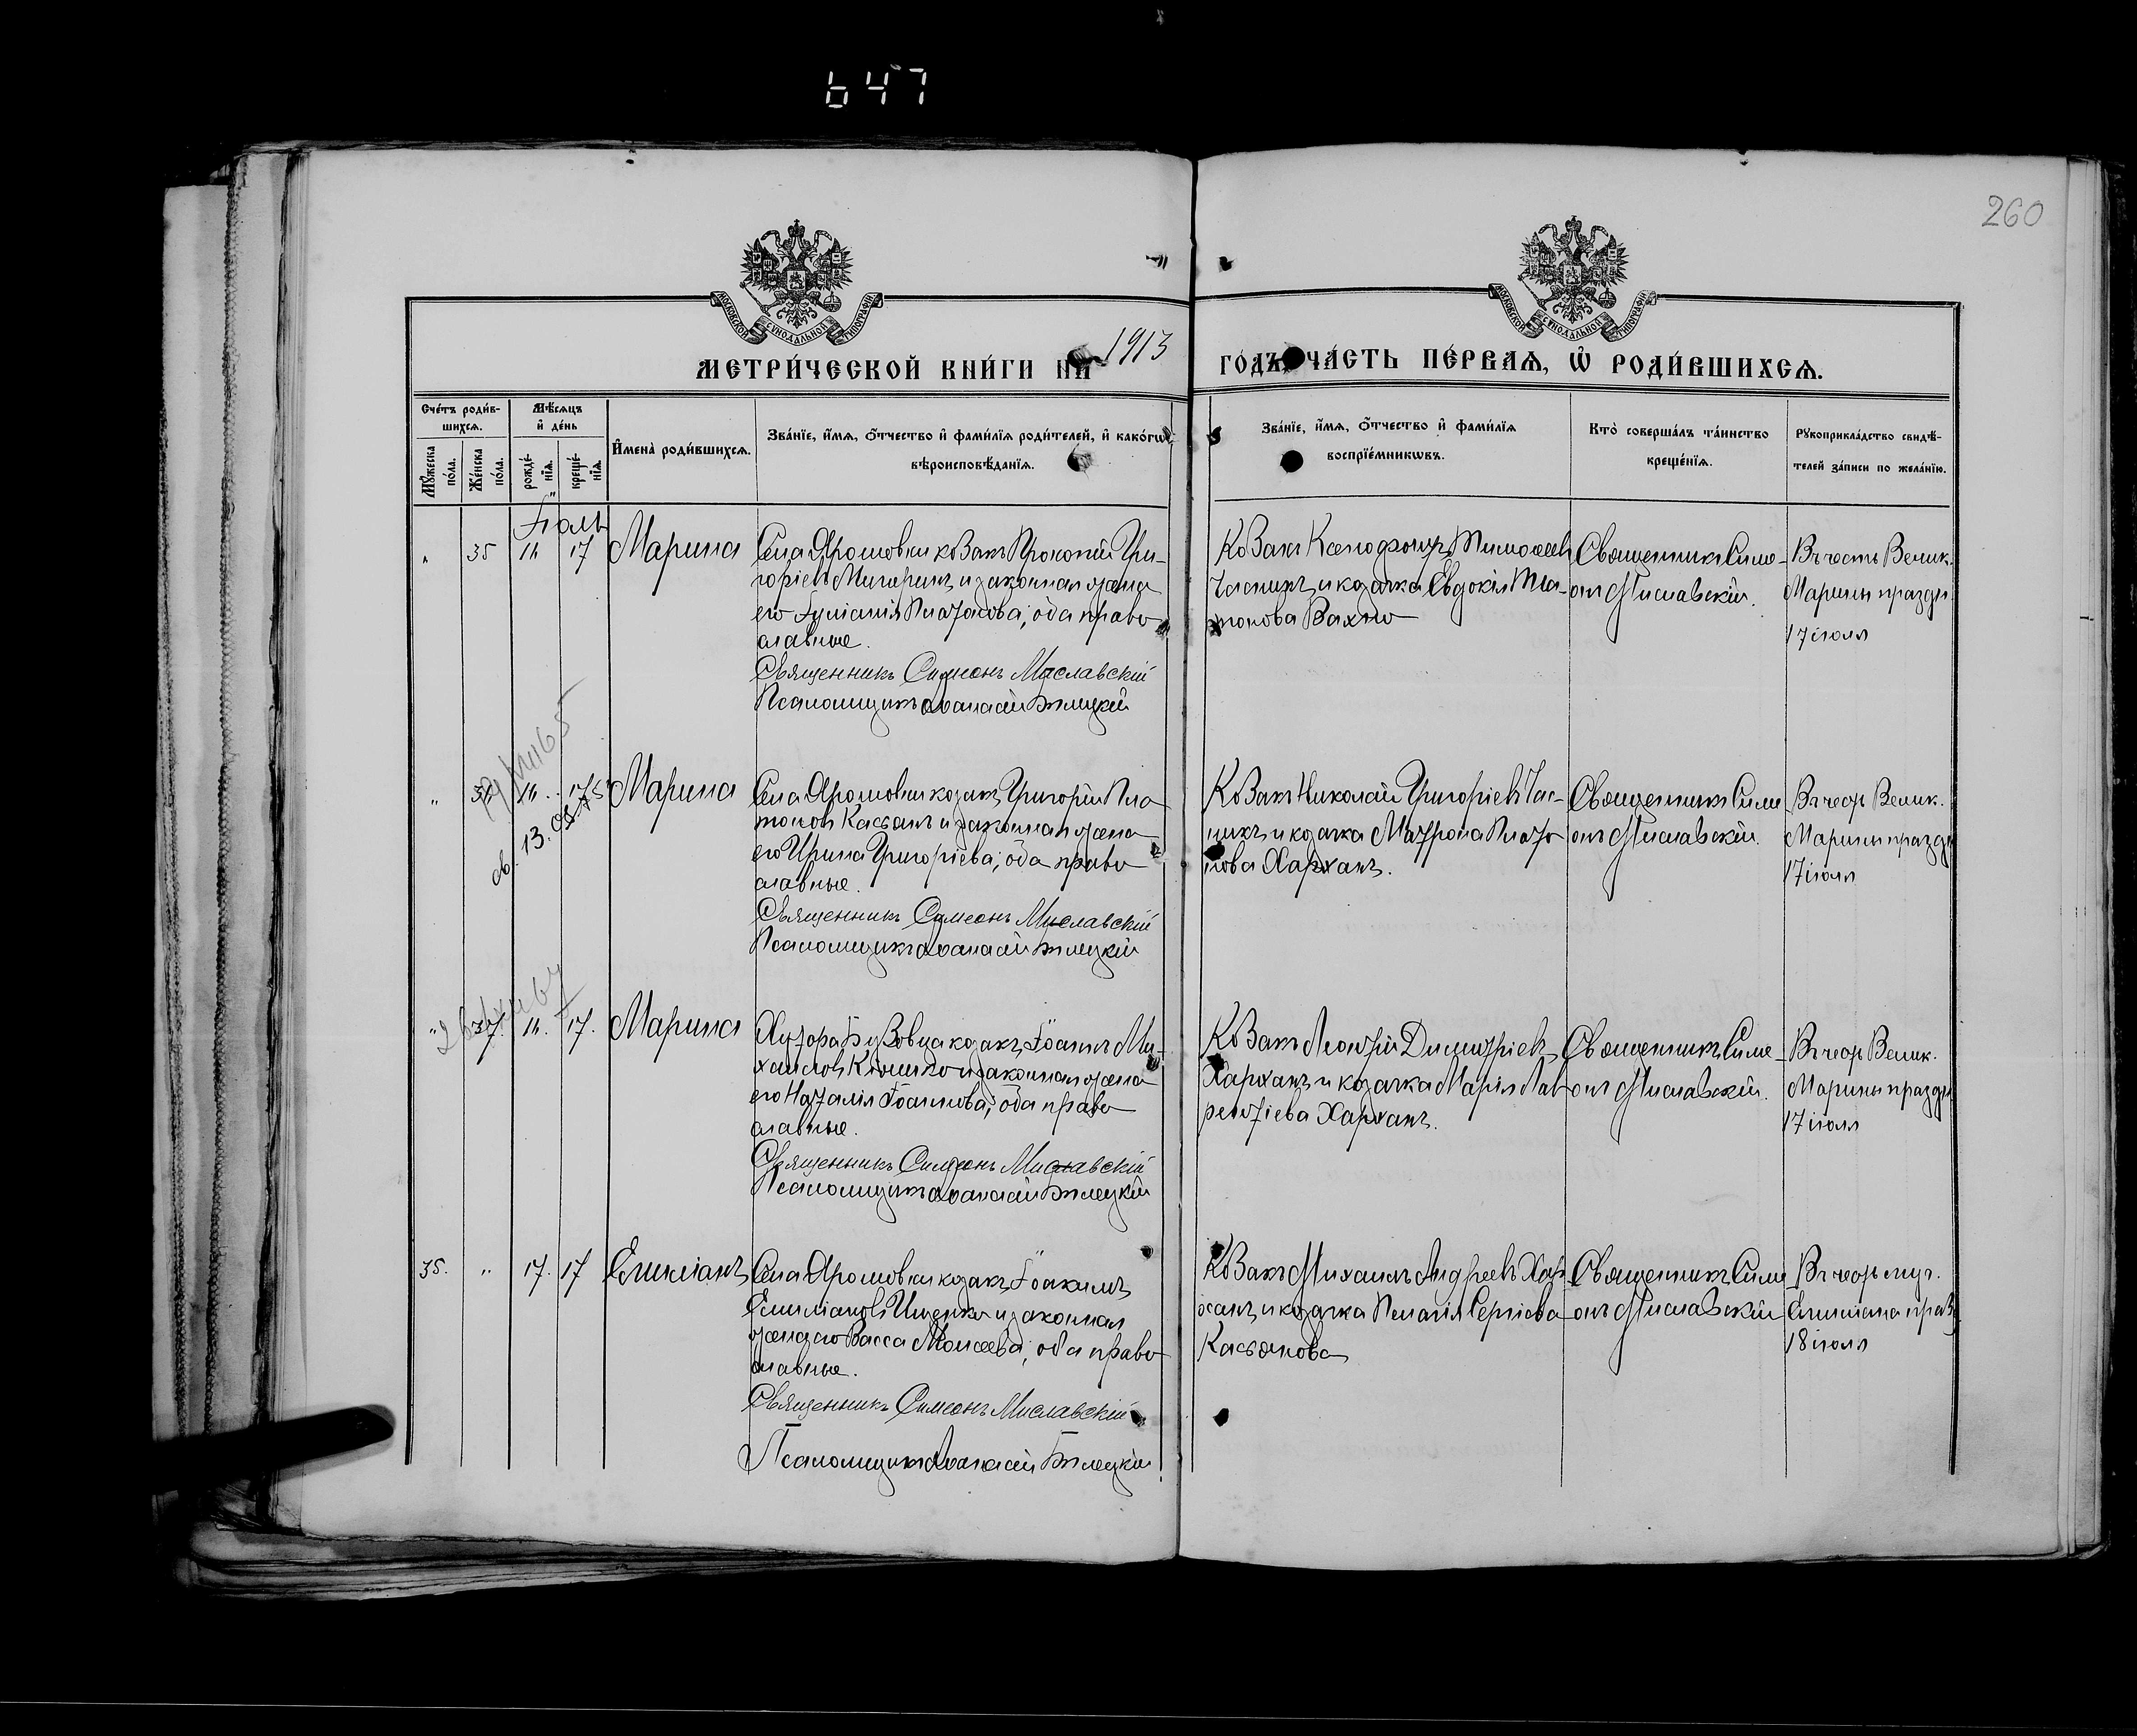 647
260
МОСКОВСКОЙ СѴНОДАЛЬНОЙ ТИПОГРАФІИ
МОСКОВСКОЙ СѴНОДАЛЬНОЙ ТИПОГРАФІИ
МЕТРИ́ЧЕСКОЙ КНИ́ГИ НА 1913 ГОДЪ, ЧА́СТЬ ПЕ́РВАѦ, Ѡ҆ РОДИ́ВШИХСѦ.
Сче́тъ роди́в-
шихсѧ.
Мꙋ́жеска по́ла.
Же́нска по́ла.
Мѣ́сѧцъ
и҆ де́нь
рожде́-
нїѧ.
креще́-
нїѧ.
И҆мена̀ роди́вшихсѧ.
Зва́нїе, и҆́мѧ, ѻ҆́тчество и҆ фами́лїѧ роди́телей, и҆ како́гѡ
вѣроисповѣ́данїѧ.
Зва́нїе, и҆́мѧ, ѻ҆́тчество и҆ фами́лїѧ
воспрїе́мникѡвъ.
Кто̀ соверша́лъ та́инство
креще́нїѧ.
Рꙋкоприкла́дство свидѣ́-
телей за́писи по жела́нїю.
Іюль
" 35 11 17 Марина
Села Ярошовки козакъ Прокопій Гри-
горіевъ и законная жена
его Іуліанія Платонова; оба право
славные.
Священникъ Симеонъ Миславскій
Псаломщикъ Аѳанасій Бѣлецкій
Козакъ Ксенофонтъ Тимофеевъ
Часникъ и козачка Евдокія Пла-
тонова Вахно
Священникъ Симе-
онъ Миславскій.
Въ честь Велик.
Марины праздн
17 іюля
" 11. 17 Марина
Села Ярошовки козакъ Григорій Пла
тоновъ Касьянъ и законная жена
его Ирина Григоріева; оба право
славные.
Священникъ Симеонъ Миславскій
Псаломщикъ Аѳанасій Бѣлецкій
Козакъ Николай Григоріевъ Час-
никъ и козачка Матрона Плато
нова Харханъ.
Священникъ Симе
онъ Миславскій.
Въ честь Велик.
Марины праздн
17 іюля
" 37. 11. 17. Марина
Хутора Бузовца козакъ Іоаннъ Ми-
хаиловъ Клюшко и законная жена
его Наталія Іоаннова; оба право
славные.
Священникъ Симеонъ Миславскій
Псаломщикъ Аѳанасій Бѣлецкій
Козакъ Леонтій Димитріевъ
Харханъ и козачка Марія Лав
рентіева Харханъ.
Священникъ Симе-
онъ Миславскій.
Въ честь Велик.
Марины праздн
17 іюля
35. " 17. 17 Емиліанъ
Села Ярошовки козакъ Іоакимъ
Емиліановъ Ищенко и законная
жена его Васса Моисеева; оба право
славные.
Священникъ Симеонъ Миславскій
Псаломщикъ Аѳанасій Бѣлецкій
Козакъ Михаилъ Андреевъ Хар
ханъ и козачка Пелагія Сергіева
Касьянова
Священникъ Симе
онъ Миславскій
Въ честь муч.
Емиліана празд
18 іюля